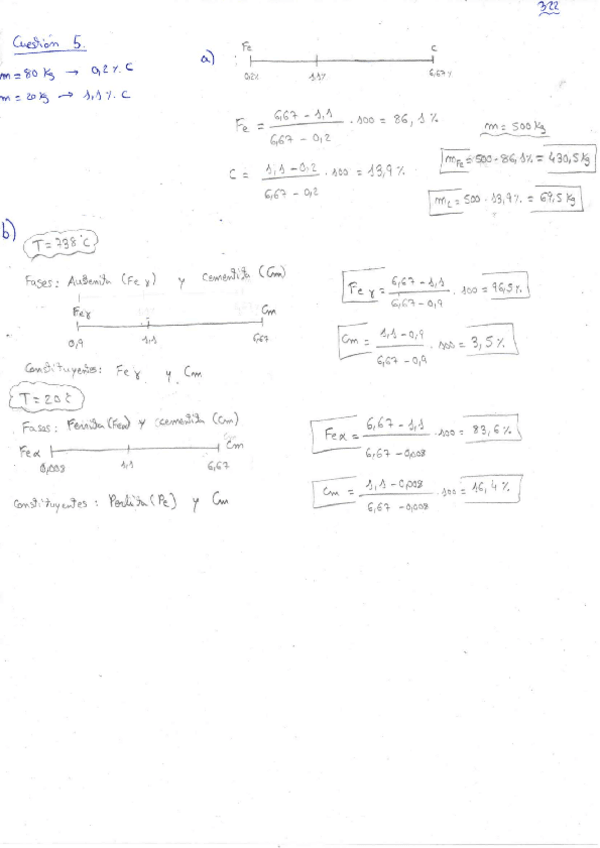 322
Cuestión 5.
m = 80 Kg → 0,2 % C
m = 20 Kg → 1,1 % C
a)
Fe C
0,2% 1,1% 6,67%
Fe = (6,67 - 1,1) / (6,67 - 0,2) · 100 = 86,1 %
C = (1,1 - 0,2) / (6,67 - 0,2) · 100 = 13,9 %
m = 500 Kg
m Fe = 500 · 86,1 % = 430,5 Kg
m C = 500 · 13,9 % = 69,5 Kg
b)
T = 738 °C
Fases: Austenita (Fe γ) y cementita (Cm)
Feγ Cm
0,9 1,1 6,67
Fe γ = (6,67 - 1,1) / (6,67 - 0,9) · 100 = 96,5 %
Cm = (1,1 - 0,9) / (6,67 - 0,9) · 100 = 3,5 %
Constituyentes: Fe γ y Cm
T = 20 °C
Fases: Ferrita (Feα) y cementita (Cm)
Feα Cm
0,008 1,1 6,67
Feα = (6,67 - 1,1) / (6,67 - 0,008) · 100 = 83,6 %
Cm = (1,1 - 0,008) / (6,67 - 0,008) · 100 = 16,4 %
Constituyentes: Perlita (Pe) y Cm